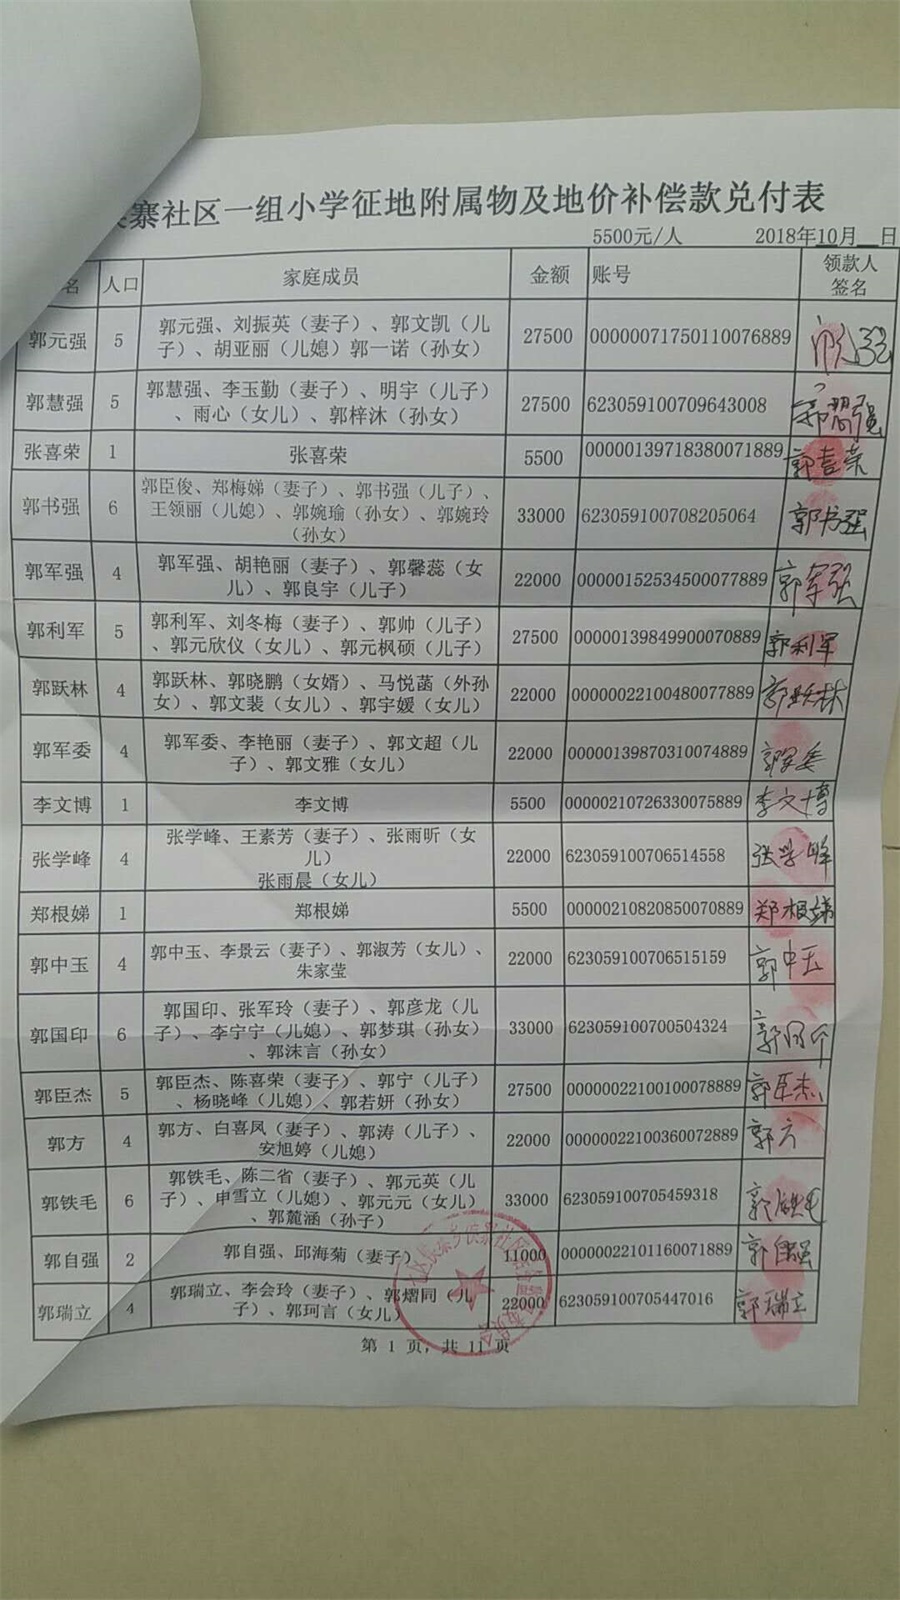 寨社区一组小学征地附属物及地价补偿款兑付表
5500元/人 2018年10月__日
名 人口 家庭成员 金额 账号 领款人
签名
郭元强 5 郭元强、刘振英（妻子）、郭文凯（儿
子）、胡亚丽（儿媳）郭一诺（孙女） 27500 00000071750110076889
郭慧强 5 郭慧强、李玉勤（妻子）、明宇（儿子）
、雨心（女儿）、郭梓沐（孙女） 27500 623059100709643008 郭慧强
张喜荣 1 张喜荣 5500 00000139718380071889 郭喜荣
郭书强 6 郭臣俊、郑梅娣（妻子）、郭书强（儿子）、
王领丽（儿媳）、郭婉瑜（孙女）、郭婉玲
（孙女） 33000 623059100708205064 郭书强
郭军强 4 郭军强、胡艳丽（妻子）、郭馨蕊（女
儿）、郭良宇（儿子） 22000 00000152534500077889 郭军强
郭利军 5 郭利军、刘冬梅（妻子）、郭帅（儿子）
、郭元欣仪（女儿）、郭元枫硕（儿子） 27500 00000139849900070889 郭利军
郭跃林 4 郭跃林、郭晓鹏（女婿）、马悦菡（外孙
女）、郭文裴（女儿）、郭宇媛（女儿） 22000 00000022100480077889 郭跃林
郭军委 4 郭军委、李艳丽（妻子）、郭文超（儿
子）、郭文雅（女儿） 22000 00000139870310074889 郭军委
李文博 1 李文博 5500 00000210726330075889 李文博
张学峰 4 张学峰、王素芳（妻子）、张雨昕（女
儿）
张雨晨（女儿） 22000 623059100706514558 张学峰
郑根娣 1 郑根娣 5500 00000210820850070889 郑根娣
郭中玉 4 郭中玉、李景云（妻子）、郭淑芳（女儿）、
朱家莹 22000 623059100706515159 郭中玉
郭国印 6 郭国印、张军玲（妻子）、郭彦龙（儿
子）、李宁宁（儿媳）、郭梦琪（孙女）
、郭沫言（孙女） 33000 623059100700504324 郭国印
郭臣杰 5 郭臣杰、陈喜荣（妻子）、郭宁（儿子）
、杨晓峰（儿媳）、郭若妍（孙女） 27500 00000022100100078889 郭臣杰
郭方 4 郭方、白喜凤（妻子）、郭涛（儿子）、
安旭婷（儿媳） 22000 00000022100360072889 郭方
郭铁毛 6 郭铁毛、陈二省（妻子）、郭元英（儿
子）、申雪立（儿媳）、郭元元（女儿）
、郭麓涵（孙子） 33000 623059100705459318 郭铁毛
郭自强 2 郭自强、邱海菊（妻子） 11000 00000022101160071889 郭自强
郭瑞立 4 郭瑞立、李会玲（妻子）、郭熠同（儿
子）、郭珂言（女儿） 22000 623059100705447016 郭瑞立
第 1 页，共 11 页